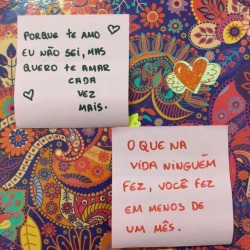 PORQUE TE AMO
EU NÃO SEI, MAS
QUERO TE AMAR
CADA
VEZ
MAIS.
O QUE NA
VIDA NINGUÉM
FEZ, VOCÊ FEZ
EM MENOS DE
UM MÊS.